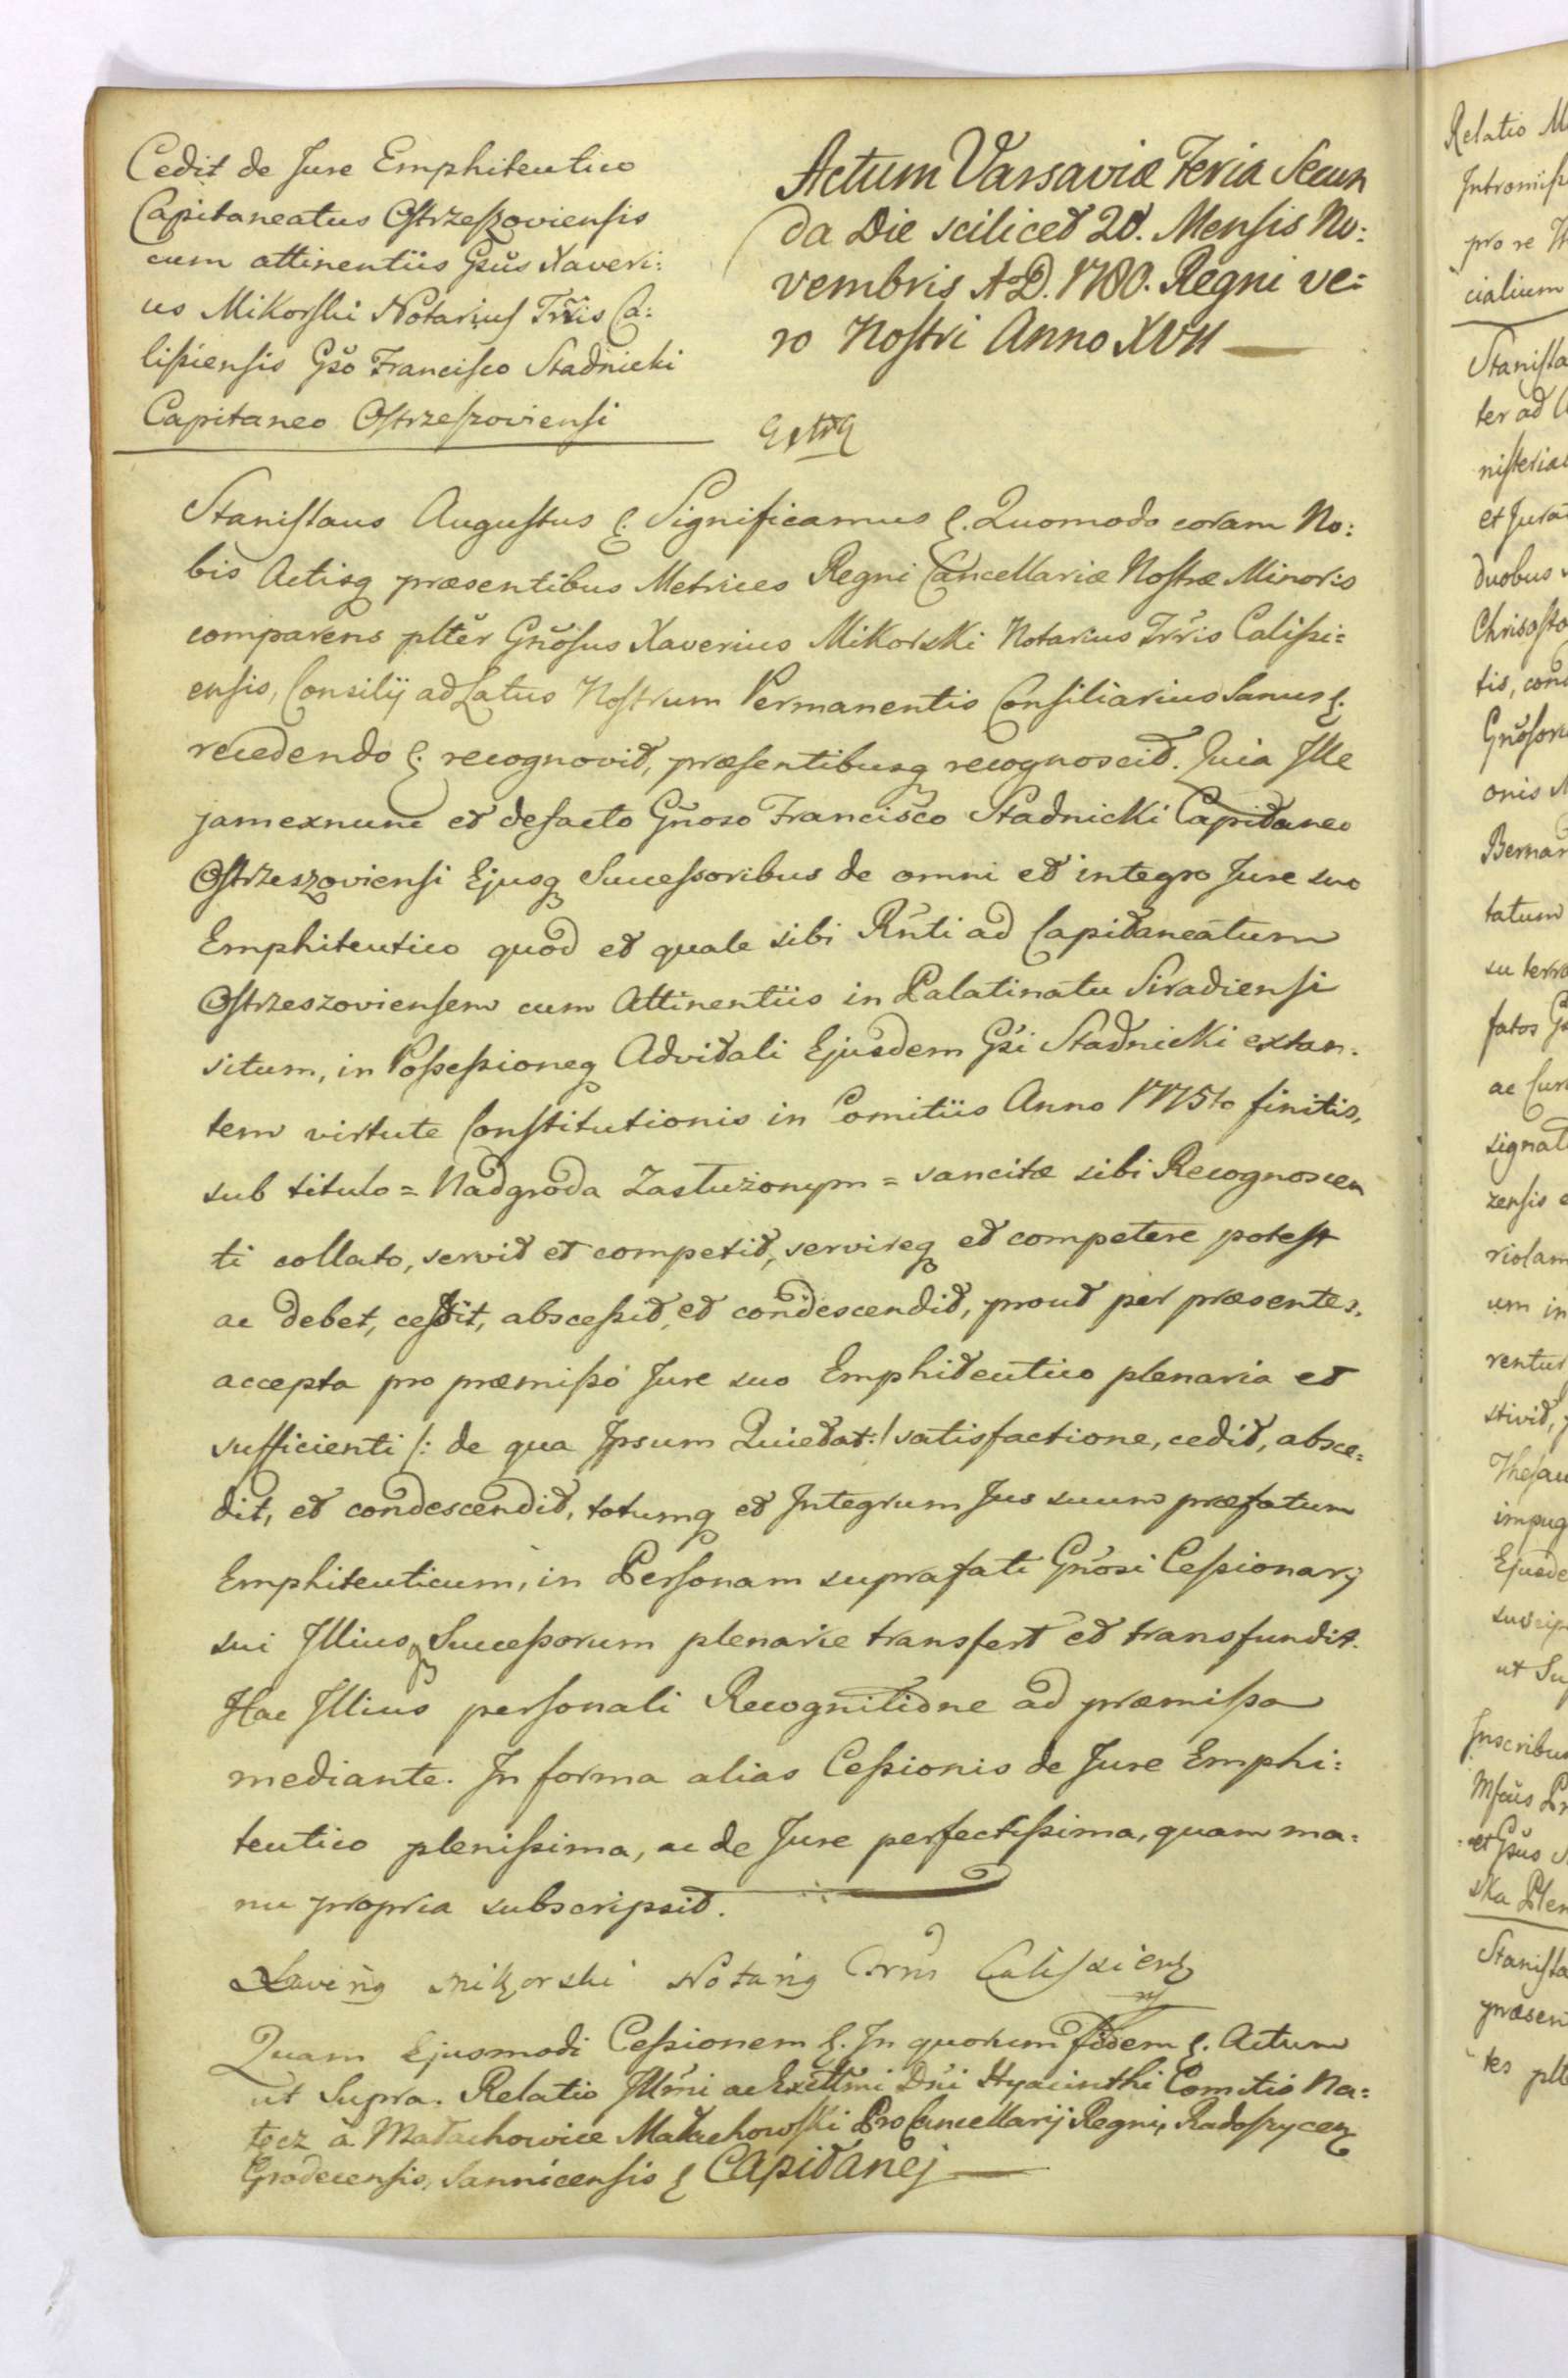 Cedit de Jure Emphiteutico
Capitaneatus Ostrzeszoviensis
cum attinentiis Gsus Xaveri:
us Mikorski Notarius Trris Ca:
lissiensis Gso Francisco Stadnicki
Capitaneo Ostrzeszoviensi
Actum Varsaviæ Feria Secun
da Die scilicet 20. Mensis No:
vembris A.D. 1780. Regni ve:
ro Nostri Anno XVII
Stanislaus Augustus &. Significamus &. Quomodo coram No:
bis Actisq præsentibus Metrices Regni Cancellariæ Nostræ Minoris
comparens plter Gnosus Xaverius Mikorski Notarius Trris Calissi=
ensis, Consilij ad Latus Nostrum Permanentis Consiliarius Sanus &.
recedendo &. recognovit, præsentibusq recognoscit. Quia Ille
jam exnunc et defacto Gnoso Francisco Stadnicki Capitaneo
Ostrzeszoviensi Ejusq Successoribus de omni et integro Jure suo
Emphiteutico quod et quale sibi Rnti ad Capitaneatum
Ostrzeszoviensem cum Attinentiis in Palatinatu Siradiensi
situm, in Possessioneq Advitali Ejusdem Gsi Stadnicki extan.
tem virtute Constitutionis in Comitiis Anno 1775to finitis,
sub titulo = Nadgroda Zasłużonym = sancitæ sibi Recognoscen
ti collato, servit et competit, servireq et competere potest
ac debet, cessit, abscessit, et condescendit, prout per præsentes,
accepta pro præmisso Jure suo Emphiteutico plenaria et
sufficienti /: de qua Ipsum Quietat :/ satisfactione, cedit, absce=
dit, et condescendit, totumq et Integrum Jus suum præfatum
Emphiteuticum, in Personam suprafati Gnosi Cessionarij
sui Illiusq Successorum plenarie transfert et transfundit.
Hac Illius personali Recognitione ad præmissa
mediante. In forma alias Cessionis de Jure Emphi:
teutico plenissima, ac de Jure perfectissima, quam ma=
nu propria subscripsit.
Xaverig Mikorski Notarig Trris Calissiens
Quam Ejusmodi Cessionem &. In quorum fidem &. Actum
ut Supra. Relatio Illmi ac Excllmi Dni Hyacinthi Comitis Na=
łęcz à Małachowice Małachowski ProCancellarij Regni, Radoszycen
Grodecensis, Sannicensis & Capitanej
Relatio
pro re
cialium
Stanisla
ter ad
et Jura
duobus
tis,
onis
Bernar
tatum
fatos
signat
um in
Ejusde
ut Su
Stanisla
præsen
tes plt